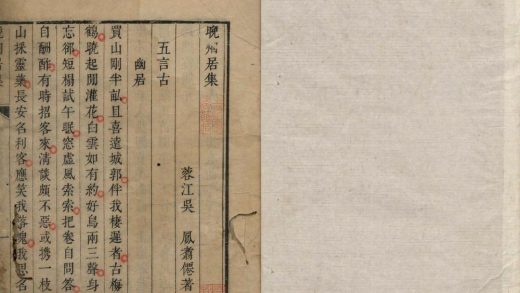 晚居集
蓉江吳 鳳翥僊著
五言古
幽居
買山剛半畝且喜遠城郭伴我棲遲者古梅
鶴曉起閒灌花白雲如有約好鳥兩三聲身
忘卻短榻試午眠窓虛風索索把卷自問答
自酬酢有時招客來清談頗不惡或携一枝
山採靈藥長安名利客應笑我落魄我思名
居集